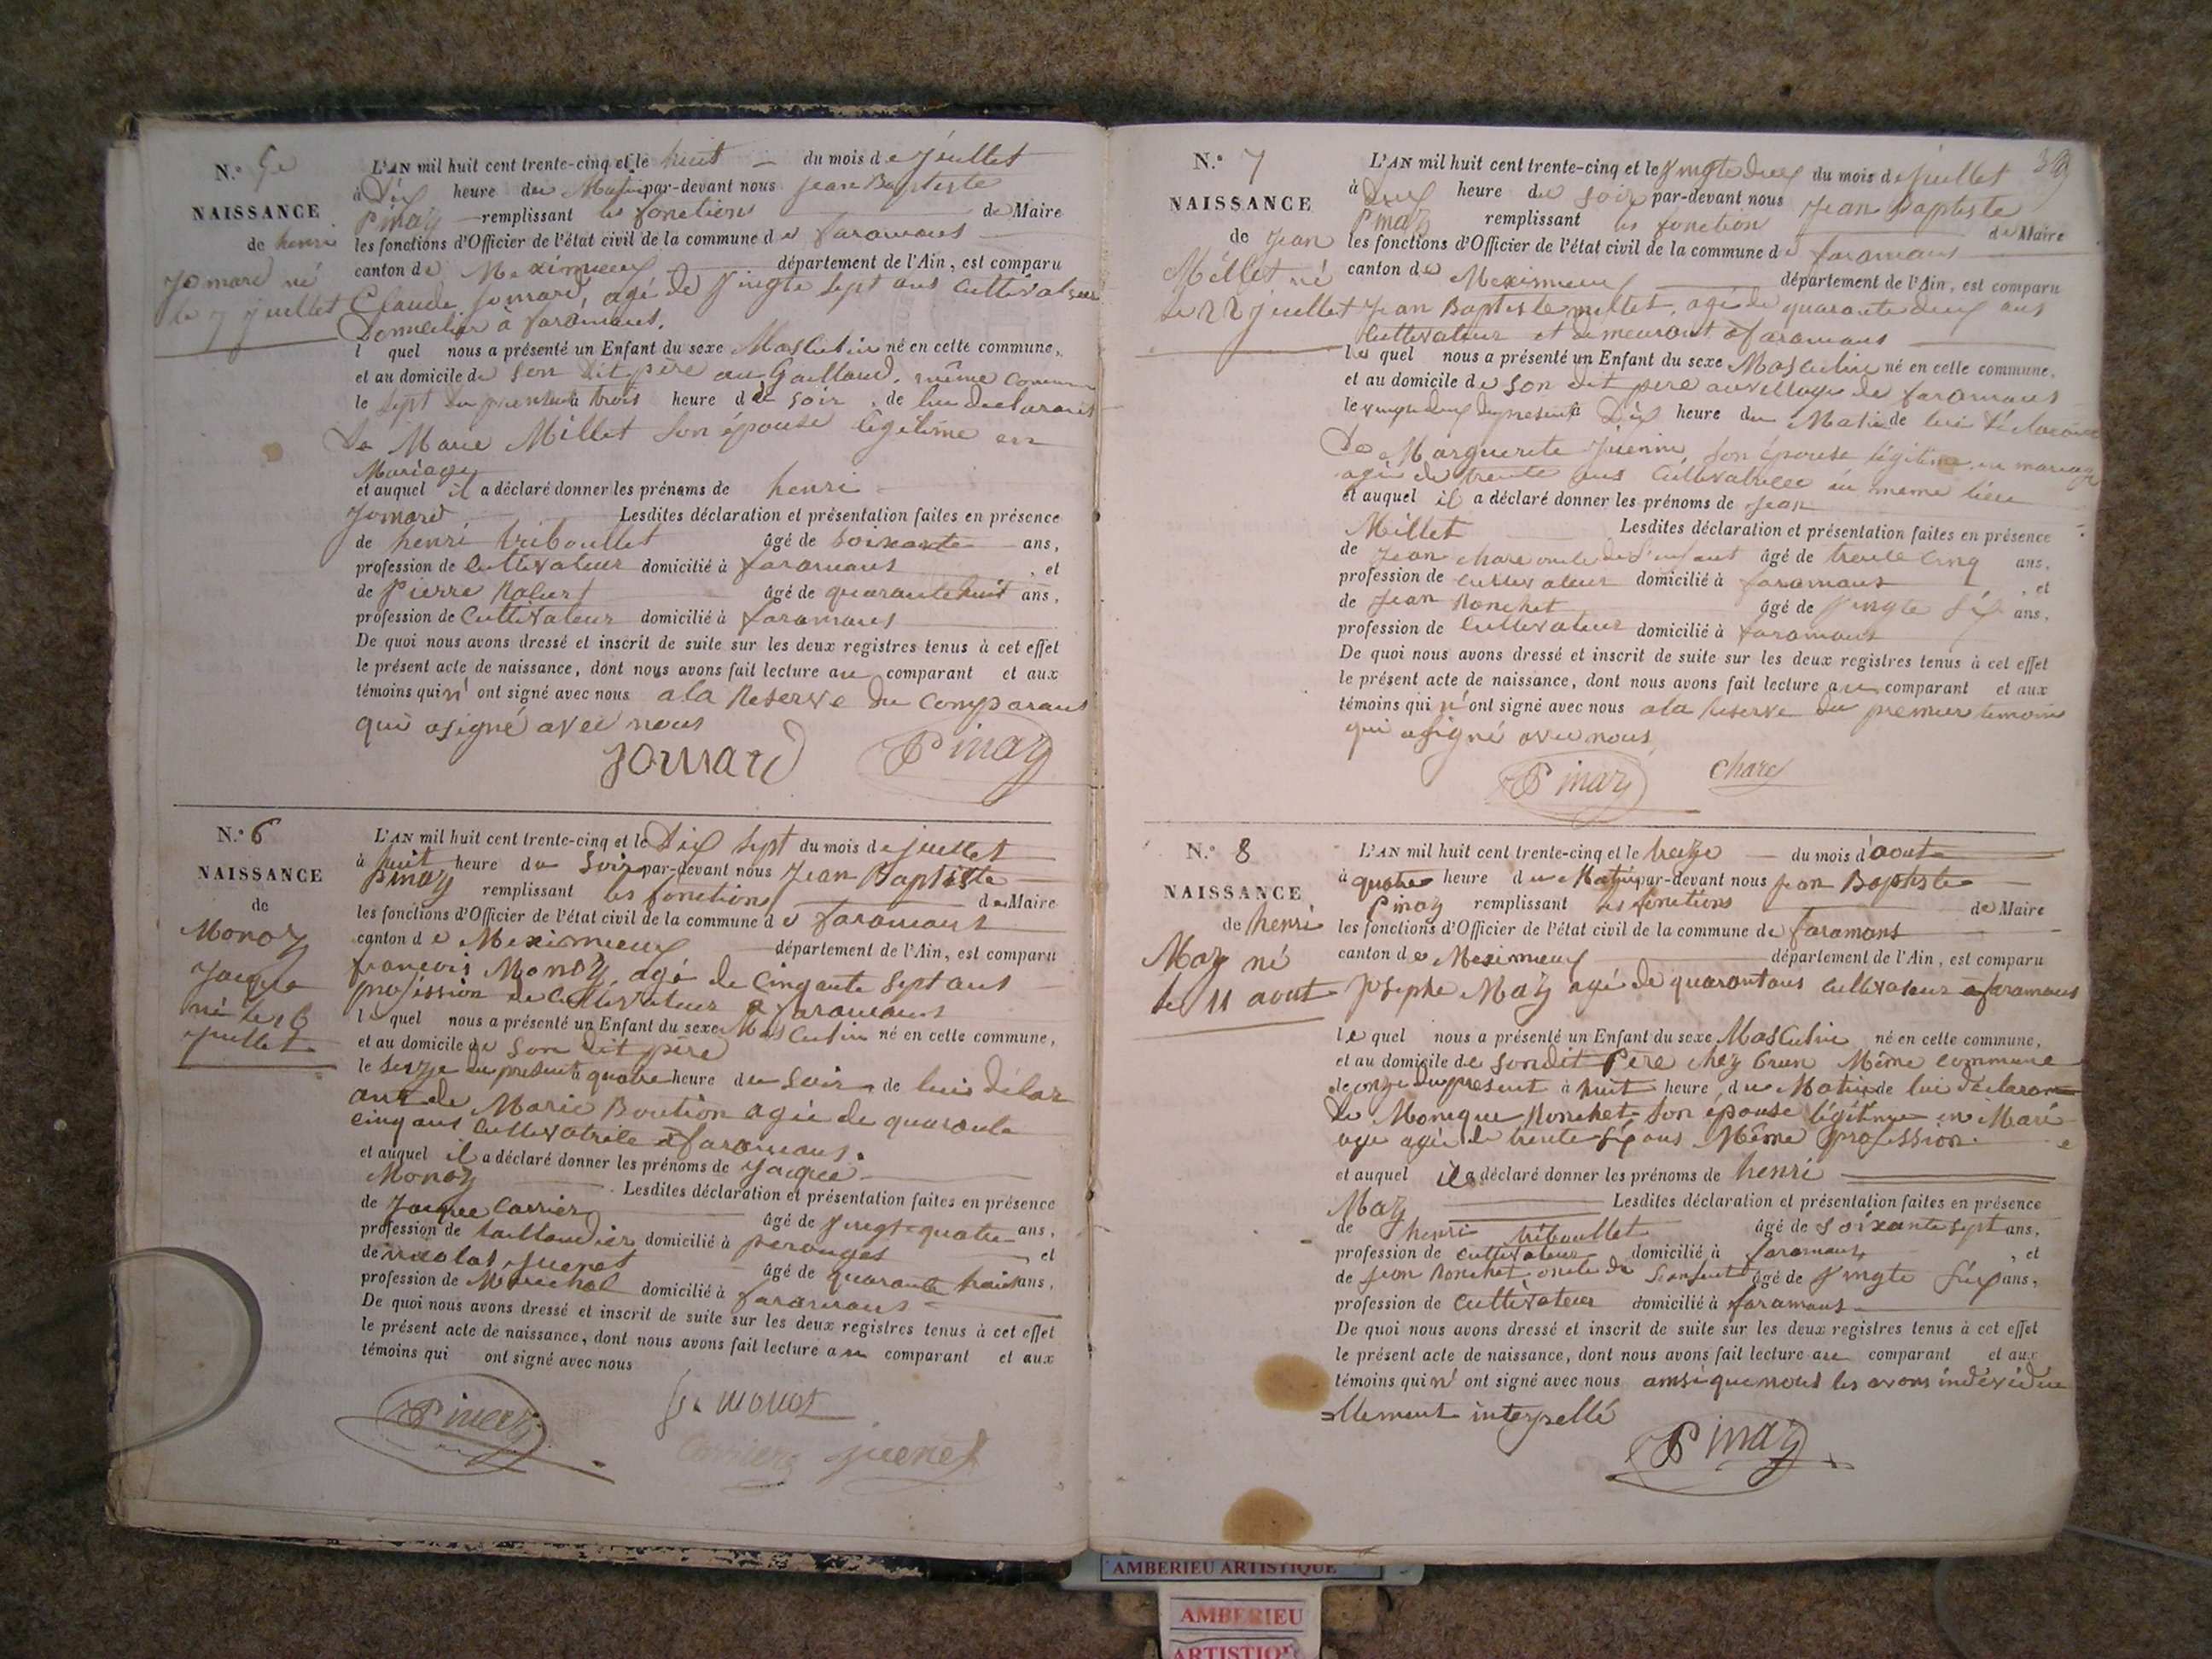 N.º 5e
NAISSANCE
de henri
Jomard né
le 7 juillet
L'AN mil huit cent trente-cinq et le huit du mois de juillet
à Dix heure du Matin par-devant nous Jean Baptiste
Pinaz remplissant les fonctions de Maire
les fonctions d'Officier de l'état civil de la commune de faramans
canton de Meximieux département de l'Ain, est comparu
Claude Jomard, agé de Vingte Sept ans Cultivateur
Domicilié à faramans.
lequel nous a présenté un Enfant du sexe Masculin né en cette commune,
et au domicile de son dit père au Gaillard, même Commune
le Sept du présent à trois heure du soir, de lui declarant
De Marie Millet son épouse légitime en
Mariage
et auquel il a déclaré donner les prénoms de henri
Jomard Lesdites déclaration et présentation faites en présence
de henri triboullet âgé de soixante ans,
profession de Cultivateur domicilié à faramans, et
de Pierre âgé de quarante huit ans,
profession de Cultivateur domicilié à faramans
De quoi nous avons dressé et inscrit de suite sur les deux registres tenus à cet effet
le présent acte de naissance, dont nous avons fait lecture au comparant et aux
témoins qui n' ont signé avec nous a la Reserve du Comparant
qui a signé avec nous
Jomard Pinaz
N.º 6
NAISSANCE
de
Monoz
Jacque
né le 16
Juillet
L'AN mil huit cent trente-cinq et le Dix Sept du mois de juillet
à huit heure du Soir par-devant nous Jean Baptiste
Pinaz remplissant les fonctions de Maire
les fonctions d'Officier de l'état civil de la commune de faramans
canton de Meximieux département de l'Ain, est comparu
françois Monoz, agé de Cinqante Sept ans
profession de Cultivateur a faramans
lequel nous a présenté un Enfant du sexe Masculin né en cette commune,
et au domicile de son dit père
le seize du présent à quatre heure du Soir, de lui Délar
ant de Marie Boution agée de quarante
cinq ans Cultivatrice a faramans.
et auquel il a déclaré donner les prénoms de Jacque
Monoz Lesdites déclaration et présentation faites en présence
de Jacque Carrier âgé de Vingt quatre ans,
profession de taillandier domicilié à perouges et
de nicolas Juenet âgé de quarante huit ans,
profession de Marechal domicilié à faramans
De quoi nous avons dressé et inscrit de suite sur les deux registres tenus à cet effet
le présent acte de naissance, dont nous avons fait lecture au comparant et aux
témoins qui ont signé avec nous
Pinaz monoz
Carrier juenet
N.º 7
NAISSANCE
de Jean
Millet né
le 22 juillet
L'AN mil huit cent trente-cinq et le Vingte Deux du mois de juillet
à Deux heure du soir par-devant nous Jean Baptiste
Pinaz remplissant les fonction de Maire
les fonctions d'Officier de l'état civil de la commune de faramans
canton de Meximieux département de l'Ain, est comparu
Jean Baptiste millet, agé de quarante deux ans
Cultivateur et demeurant a faramans
lequel nous a présenté un Enfant du sexe Masculin né en cette commune,
et au domicile de son dit pere au village de faramans
le vingte deux du présent à Dix heure du Matin de lui Déclarant
De Marguerite Juenin, son épouse légitime en mariage
agée de trente ans Cultivatrice au meme lieu
et auquel il a déclaré donner les prénoms de Jean
Millet Lesdites déclaration et présentation faites en présence
de Jean chare oncle de l'enfant âgé de trente Cinq ans,
profession de Cultivateur domicilié à faramans, et
de Jean Ronchet âgé de Vingte Six ans,
profession de Cultivateur domicilié à faramans
De quoi nous avons dressé et inscrit de suite sur les deux registres tenus à cet effet
le présent acte de naissance, dont nous avons fait lecture au comparant et aux
témoins qui n' ont signé avec nous a la Reserve du premier temoin
qui a signé avec nous
Pinaz
N.º 8
NAISSANCE
de henri
Maz né
le 11 aout
L'AN mil huit cent trente-cinq et le treize du mois d'aout
à quatre heure du Matin par-devant nous Jean Baptiste
Pinaz remplissant les fonctions de Maire
les fonctions d'Officier de l'état civil de la commune de faramans
canton de Meximieux département de l'Ain, est comparu
Josephe Maz agé de quarantans Cultivateur a faramans
lequel nous a présenté un Enfant du sexe Masculin né en cette commune,
et au domicile de sondit Père chez brun Même commune
le onze du présent à huit heure du Matin de lui déclarant
de Monique Ronchet son épouse légitime en Mari
age agée de trente six ans Même profession.
et auquel il a déclaré donner les prénoms de henri
Maz Lesdites déclaration et présentation faites en présence
de henri triboullet âgé de soixante sept ans,
profession de Cultivateur domicilié à faramans, et
de Jean Ronchet oncle de l'enfant âgé de Vingte Six ans,
profession de Cultivateur domicilié à faramans
De quoi nous avons dressé et inscrit de suite sur les deux registres tenus à cet effet
le présent acte de naissance, dont nous avons fait lecture au comparant et aux
témoins qui n' ont signé avec nous ainsi que nous les avons individue
ellement interpellé
Pinaz
AMBERIEU ARTISTIQUE
AMBERIEU